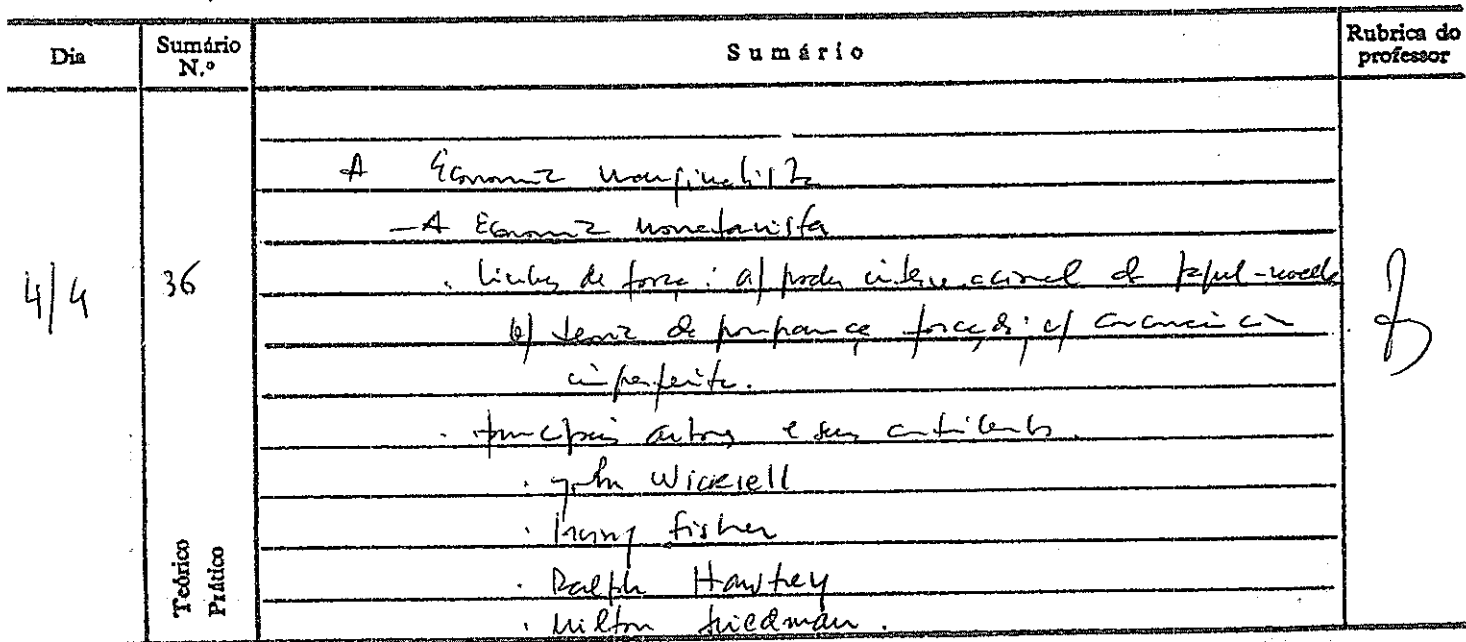 Dia
Sumário N.º
Sumário
Rubrica do professor
4/4
36
Teórico
Prático
A Economia marginalista
- A Economia monetarista
. linhas de força: a) poder internacional do papel-moeda
b) teoria da poupança forçada; c) concorrência
imperfeita.
. principais autores e seus contributos.
. John Wicksell
. Irving Fisher
. Ralph Hawtrey
. Milton Friedman.